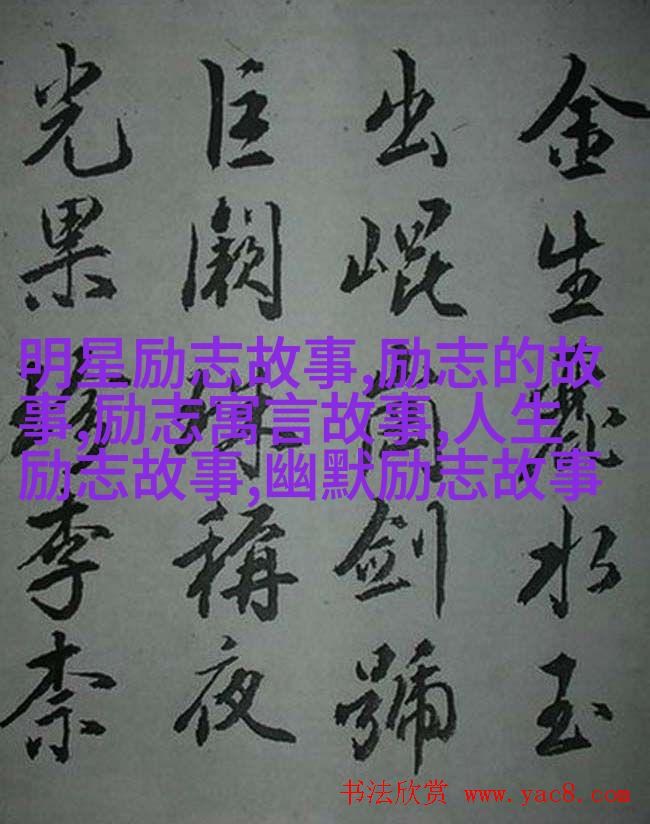 金生麗水玉
出崐岡劍號
巨闕珠稱夜
光果珍李柰
明星励志故事,励志的故
事,励志寓言故事,人生
励志故事,幽默励志故事
书法欣赏 www.yac8.com